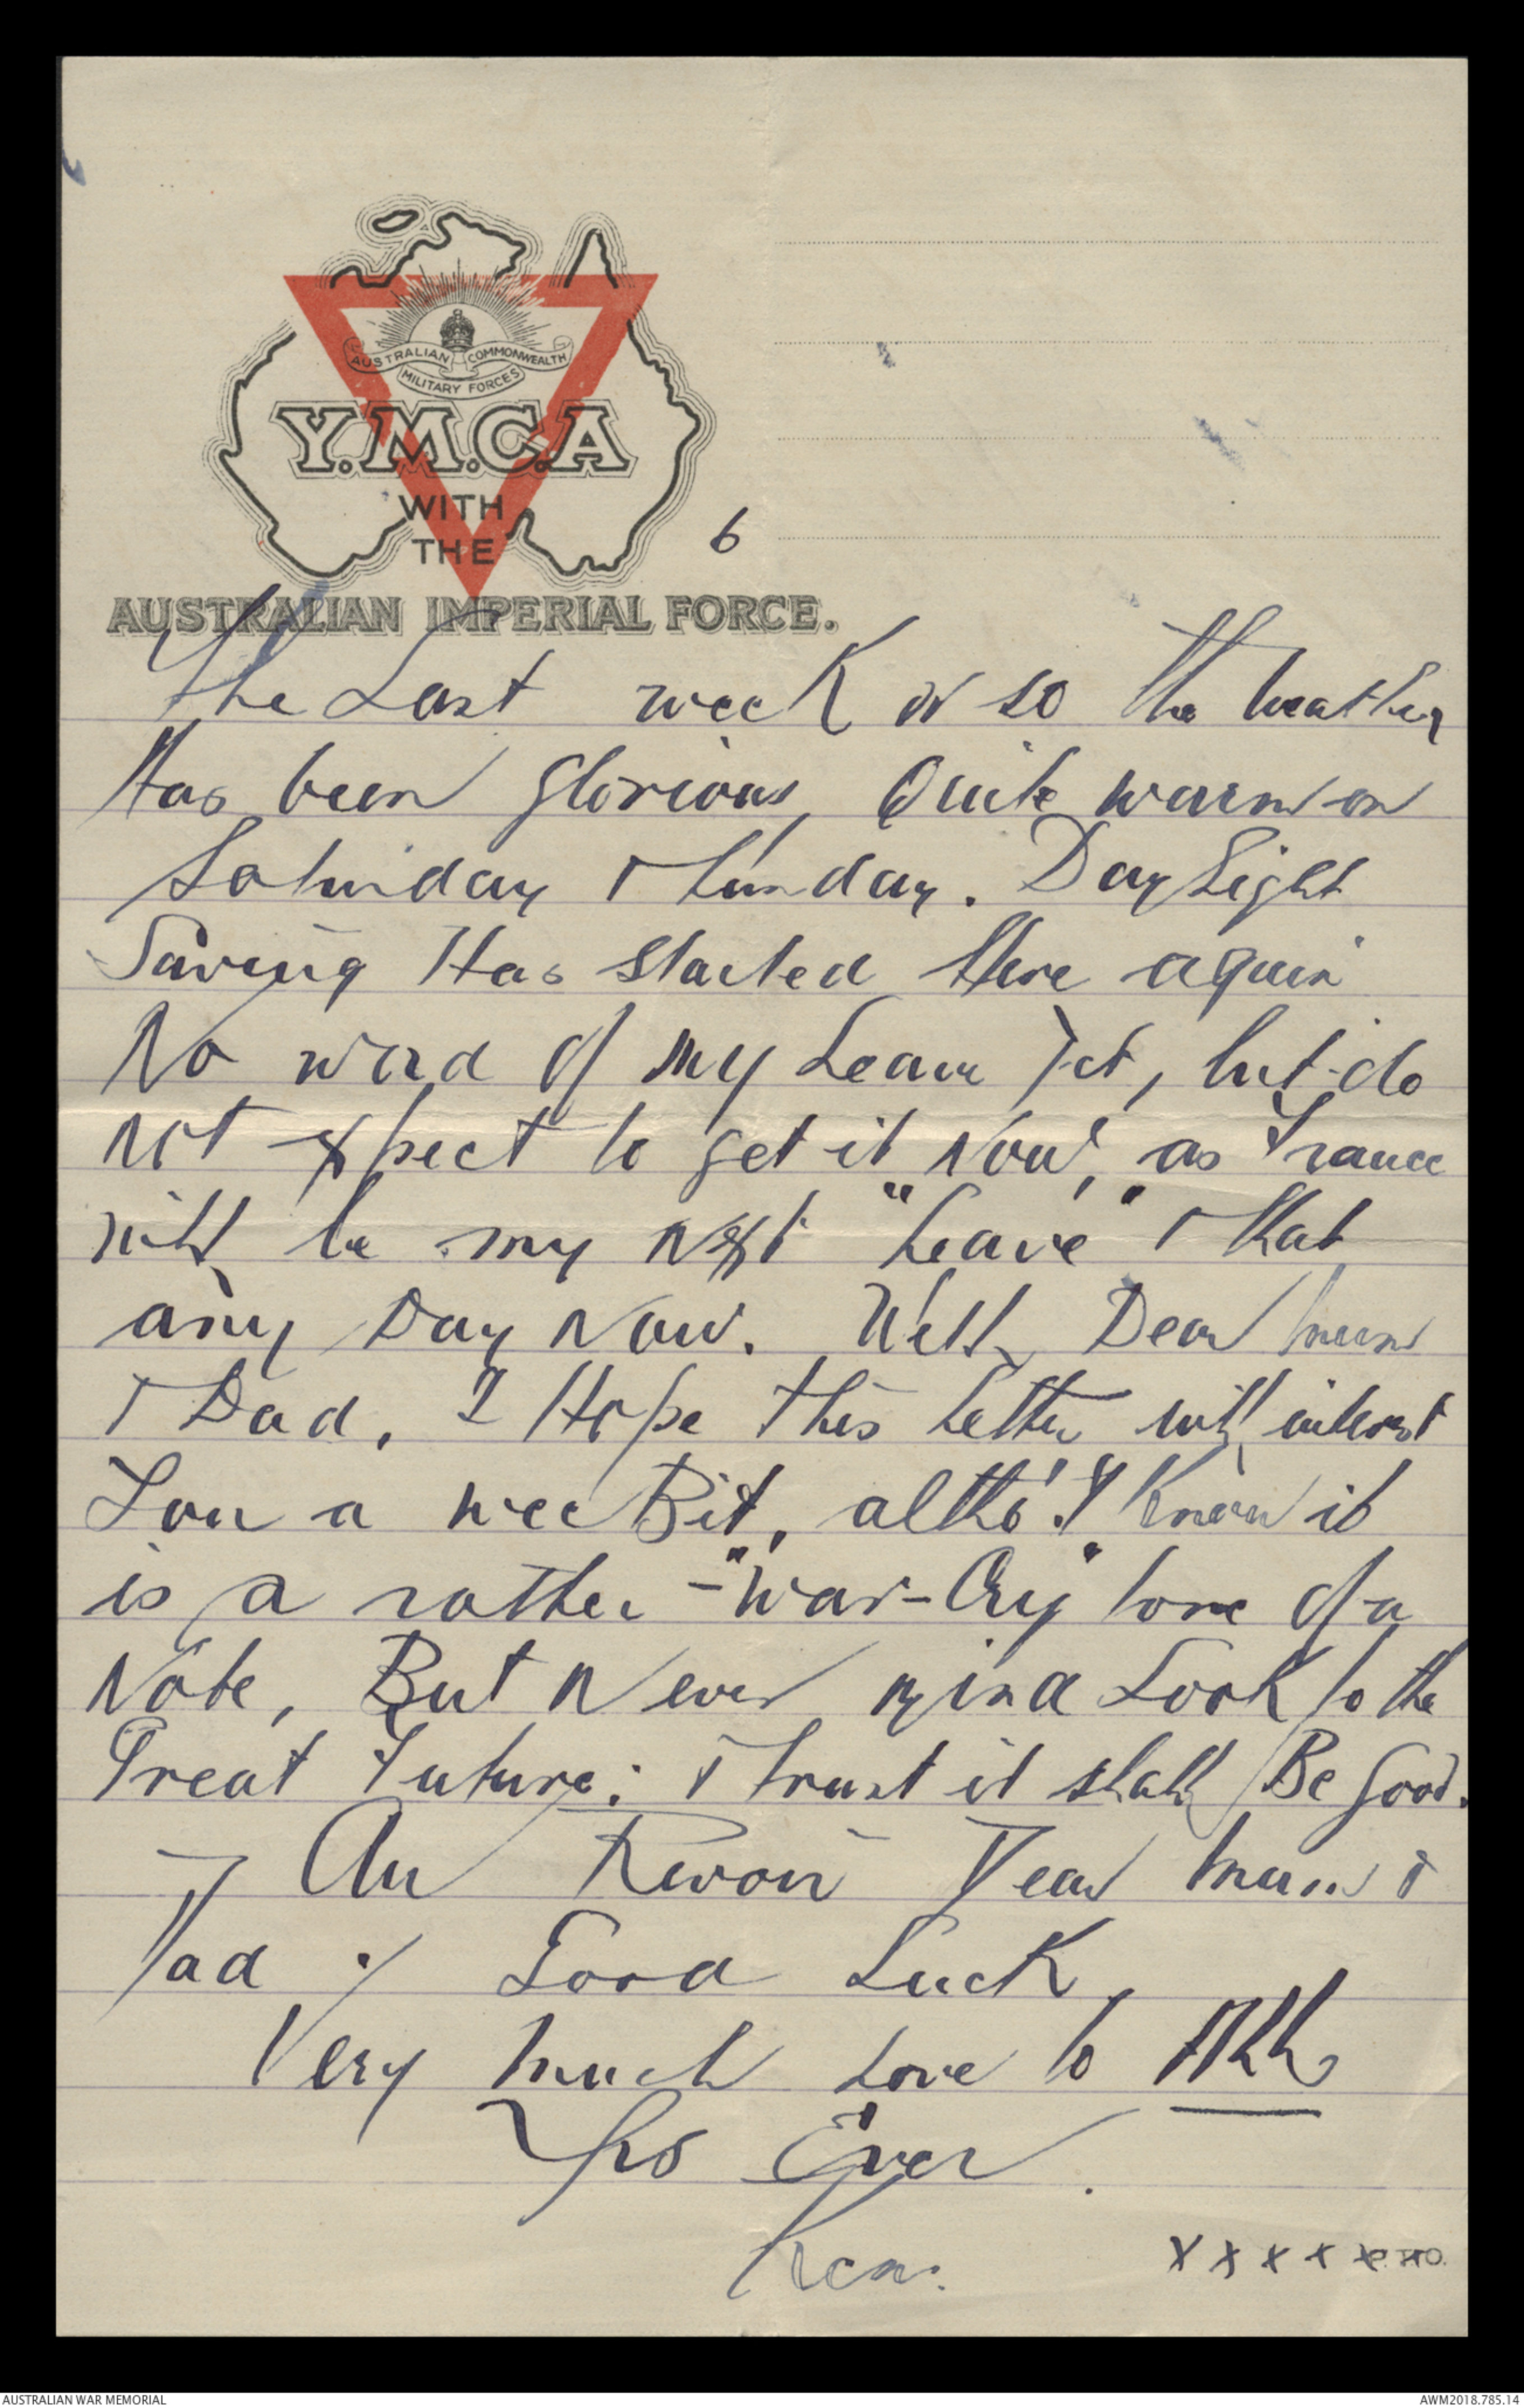 AUSTRALIAN COMMONWEALTH
MILITARY FORCES
Y.M.C.A
WITH
THE
6
AUSTRALIAN IMPERIAL FORCE.
The Last week or so the weather
Has been glorious, Quite warm on
Saturday & Sunday. DayLight
Saving Has started here again
No word of my Leave Yet, but do
not expect to get it Now, as France
will be my next "Leave" & that
any Day Now. Well, Dear Mum
& Dad, I Hope this Letter will interest
You a wee Bit, altho' I Know it
is a rather - "War-Cry" tone of a
Note, But Never mind Look to the
Great Future: & trust it shall Be Good.
Au Revoir Dear Mum &
Dad Good Luck,
Very much Love to All
Yrs Ever.
Ken.
X X X X X P.T.O.
AUSTRALIAN WAR MEMORIAL
AWM2018.785.14